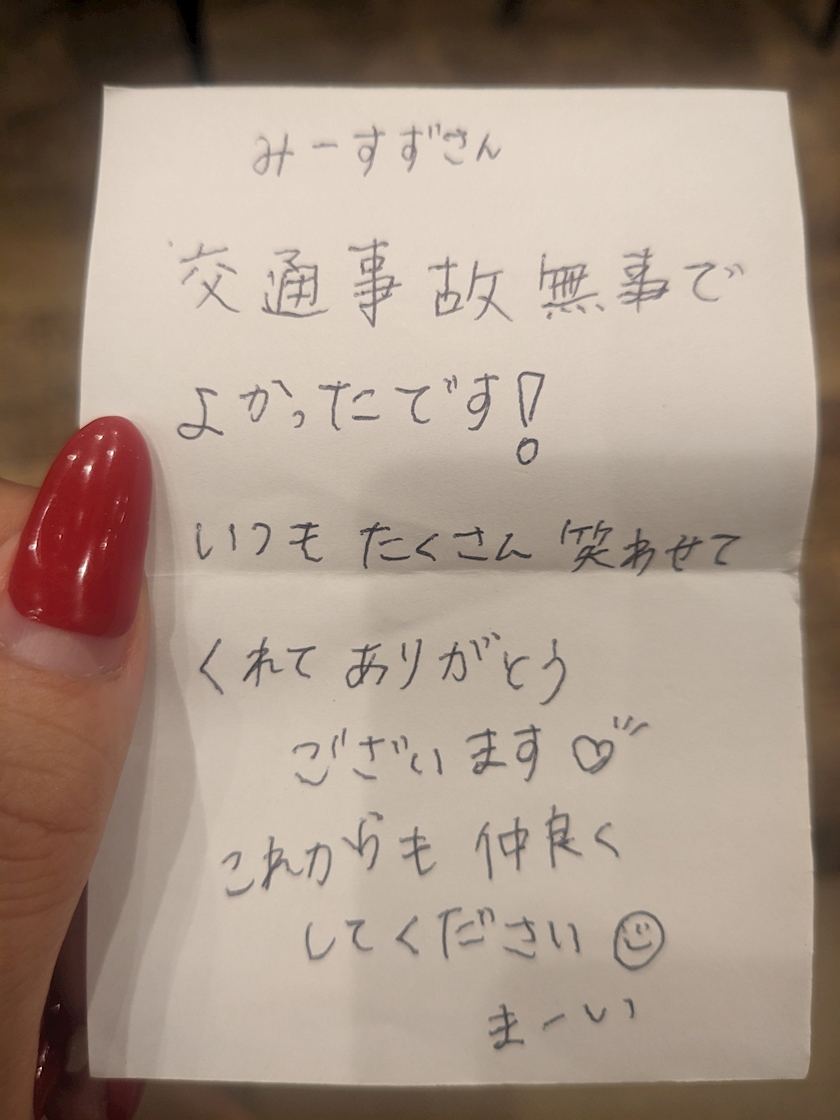 みーすずさん
交通事故無事で
よかったです!
いつもたくさん笑わせて
くれてありがとう
ございます♡
これからも仲良く
してください☺
まーい